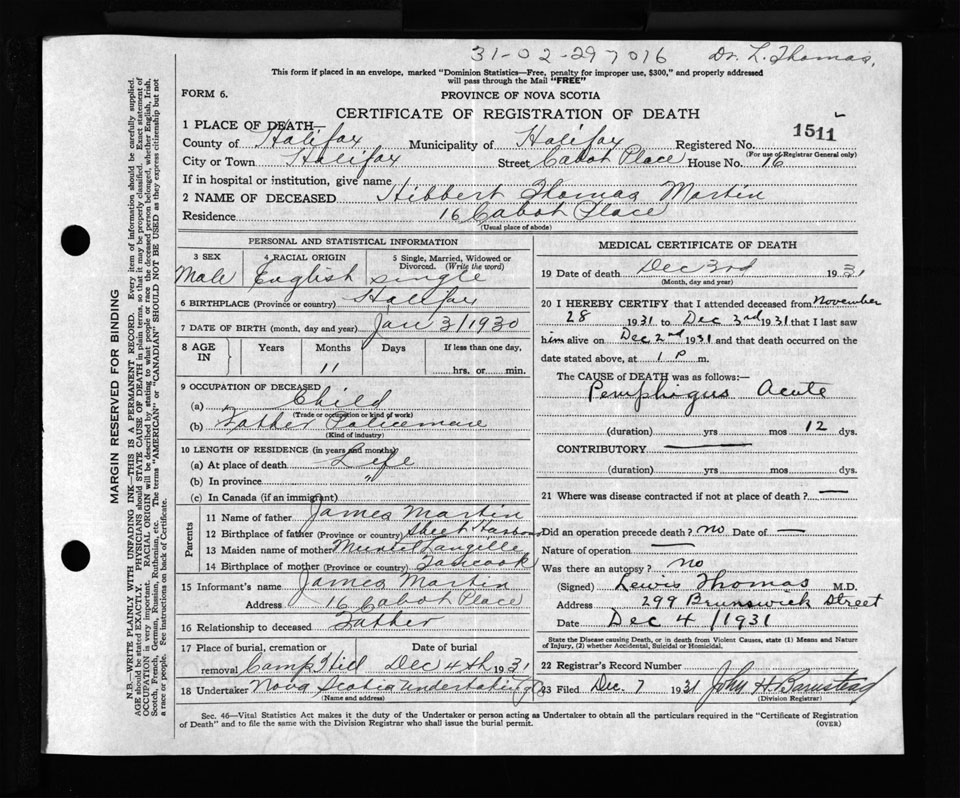 31-02-297016 Dr. L. Thomas.
This form if placed in an envelope, marked "Dominion Statistics—Free, penalty for improper use, $300," and properly addressed
will pass through the Mail "FREE"
FORM 6.
PROVINCE OF NOVA SCOTIA
CERTIFICATE OF REGISTRATION OF DEATH
1 PLACE OF DEATH—
County of Halifax Municipality of Halifax Registered No. 1511
(For use of Registrar General only)
City or Town Halifax Street Cabot Place House No. 16
If in hospital or institution, give name
2 NAME OF DECEASED Hibbert Thomas Martin
Residence 16 Cabot Place
(Usual place of abode)
PERSONAL AND STATISTICAL INFORMATION
3 SEX 4 RACIAL ORIGIN 5 Single, Married, Widowed or
Divorced. (Write the word)
Male English single
6 BIRTHPLACE (Province or country) Halifax
7 DATE OF BIRTH (month, day and year) Jan 3/1930
8 AGE IN Years Months Days If less than one day,
11 hrs. or min.
9 OCCUPATION OF DECEASED
(a) Child
(Trade or occupation or kind of work)
(b) Father Policeman
(Kind of industry)
10 LENGTH OF RESIDENCE (in years and months)
(a) At place of death Life
(b) In province "
(c) In Canada (if an immigrant)
Parents
11 Name of father James Martin
12 Birthplace of father (Province or country) Sheet Harbour
13 Maiden name of mother Langille
14 Birthplace of mother (Province or country) Tancook
15 Informant's name James Martin
Address 16 Cabot Place
16 Relationship to deceased Father
17 Place of burial, cremation or Date of burial
removal Camp Hill Dec 4th 1931
18 Undertaker Nova Scotia Undertaking Co
(Name and address)
MEDICAL CERTIFICATE OF DEATH
19 Date of death Dec 3rd 1931
(Month, day and year)
20 I HEREBY CERTIFY that I attended deceased from November
28 1931 to Dec 3rd 1931 that I last saw
him alive on Dec 2nd 1931 and that death occurred on the
date stated above, at 1 P m.
The CAUSE OF DEATH was as follows:—
Pemphigus Acute
(duration) yrs mos 12 dys.
CONTRIBUTORY —
(duration) yrs mos dys.
21 Where was disease contracted if not at place of death? —
Did an operation precede death? no Date of —
Nature of operation —
Was there an autopsy? no
(Signed) Lewis Thomas M.D.
Address 299 Brunswick Street
Date Dec 4 /1931
State the Disease causing Death, or in death from Violent Causes, state (1) Means and Nature
of Injury, (2) whether Accidental, Suicidal or Homicidal.
22 Registrar's Record Number
23 Filed Dec. 7 1931 John H
(Division Registrar)
Sec. 46—Vital Statistics Act makes it the duty of the Undertaker or person acting as Undertaker to obtain all the particulars required in the "Certificate of Registration
of Death" and to file the same with the Division Registrar who shall issue the burial permit. (OVER)
MARGIN RESERVED FOR BINDING
N.B.—WRITE PLAINLY WITH UNFADING INK—THIS IS A PERMANENT RECORD. Every item of information should be carefully supplied.
AGE should be stated EXACTLY. PHYSICIANS should STATE CAUSE OF DEATH in plain terms, so that it may be properly classified. Exact statement of
OCCUPATION is very important. RACIAL ORIGIN will be described by stating to what people or race the deceased person belonged, whether English, Irish,
Scotch, French, German, Russian, Ruthenian, etc. The terms "AMERICAN" or "CANADIAN" SHOULD NOT BE USED as they express citizenship but not
a race or people. See instructions on back of Certificate.